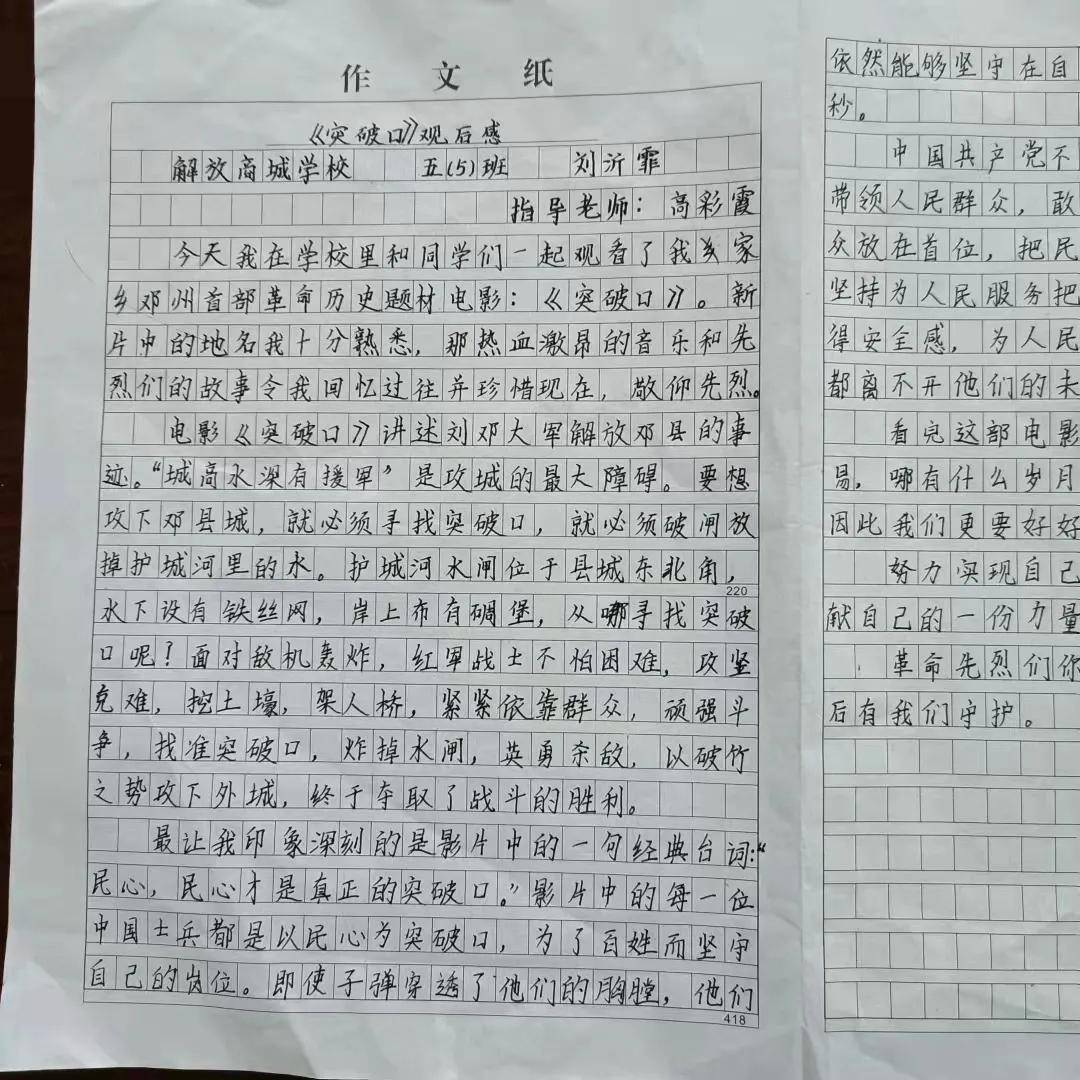 作 文 纸
《突破口》观后感
解放商城学校 五(5)班 刘沂霏
指导老师：高彩霞
今天我在学校里和同学们一起观看了我家
乡邓州首部革命历史题材电影：《突破口》。新
片中的地名我十分熟悉，那热血激昂的音乐和先
烈们的故事令我回忆过往并珍惜现在，敬仰先烈。
电影《突破口》讲述刘邓大军解放邓县的事
迹。“城高水深有援军”是攻城的最大障碍。要想
攻下邓县城，就必须寻找突破口，就必须破闸放
掉护城河里的水。护城河水闸位于县城东北角，
220
水下设有铁丝网，岸上布有碉堡，从哪寻找突破
口呢？面对敌机轰炸，红军战士不怕困难，攻坚
克难，挖土壕，架人桥，紧紧依靠群众，顽强斗
争，找准突破口，炸掉水闸，英勇杀敌，以破竹
之势攻下外城，终于夺取了战斗的胜利。
最让我印象深刻的是影片中的一句经典台词：“
民心，民心才是真正的突破口。”影片中的每一位
中国士兵都是以民心为突破口，为了百姓而坚守
自己的岗位。即使子弹穿透了他们的胸膛，他们
418
依然能够坚守在自
秒。
中国共产党不
带领人民群众，敢
众放在首位，把民
坚持为人民服务把
得安全感，为人民
都离不开他们的未
看完这部电影
易，哪有什么岁月
因此我们更要好好
努力实现自己
献自己的一份力量
革命先烈们你
后有我们守护。